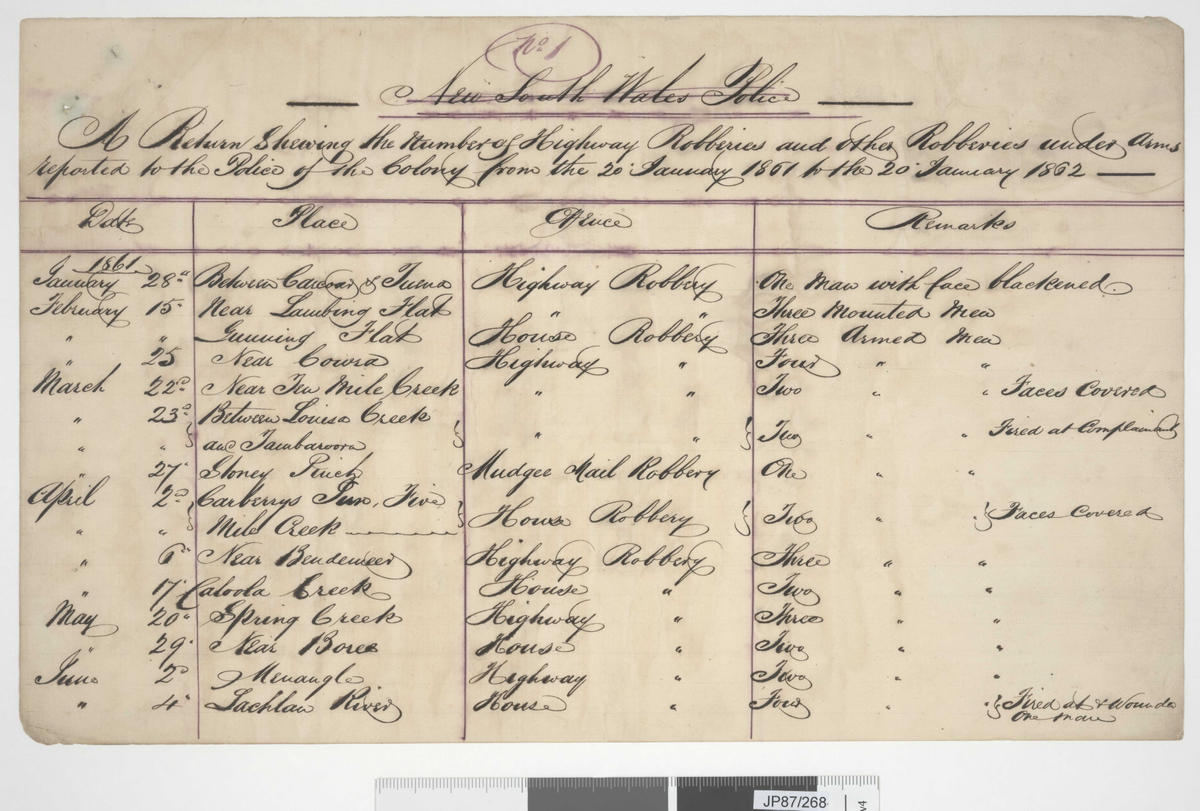 No 1
New South Wales Police
A Return Shewing the Number of Highway Robberies and other Robberies under Arms
reported to the Police of the Colony from the 20" January 1861 to the 20" January 1862
Date Place Offence Remarks
1861
January 28" Between Carcoar & Tuena Highway Robbery One Man with face blackened.
February 15" Near Lambing Flat " " Three Mounted Men
" " Gunning Flat House Robbery Three Armed Men
" 25 Near Cowra Highway " Four " "
March 22d Near Ten Mile Creek " " Two " " Faces Covered
" 23d Between Louisa Creek
" " and Tambaroora " " Two " " Fired at Complainants
" 27" Stoney Pinch Mudgee Mail Robbery One " "
April 2d Carberrys Inn, Five
" " Mile Creek House Robbery Two " " Faces Covered
" 6" Near Bendemeer Highway Robbery Three " "
" 17" Caloola Creek House " Two " "
May 20" Spring Creek Highway " Three " "
" 29" Near Boree House " Two " "
June 2d Menangle Highway " Two " "
" 4" Lachlan River House " Four " Fired at & Wounded
One man
JP87/268